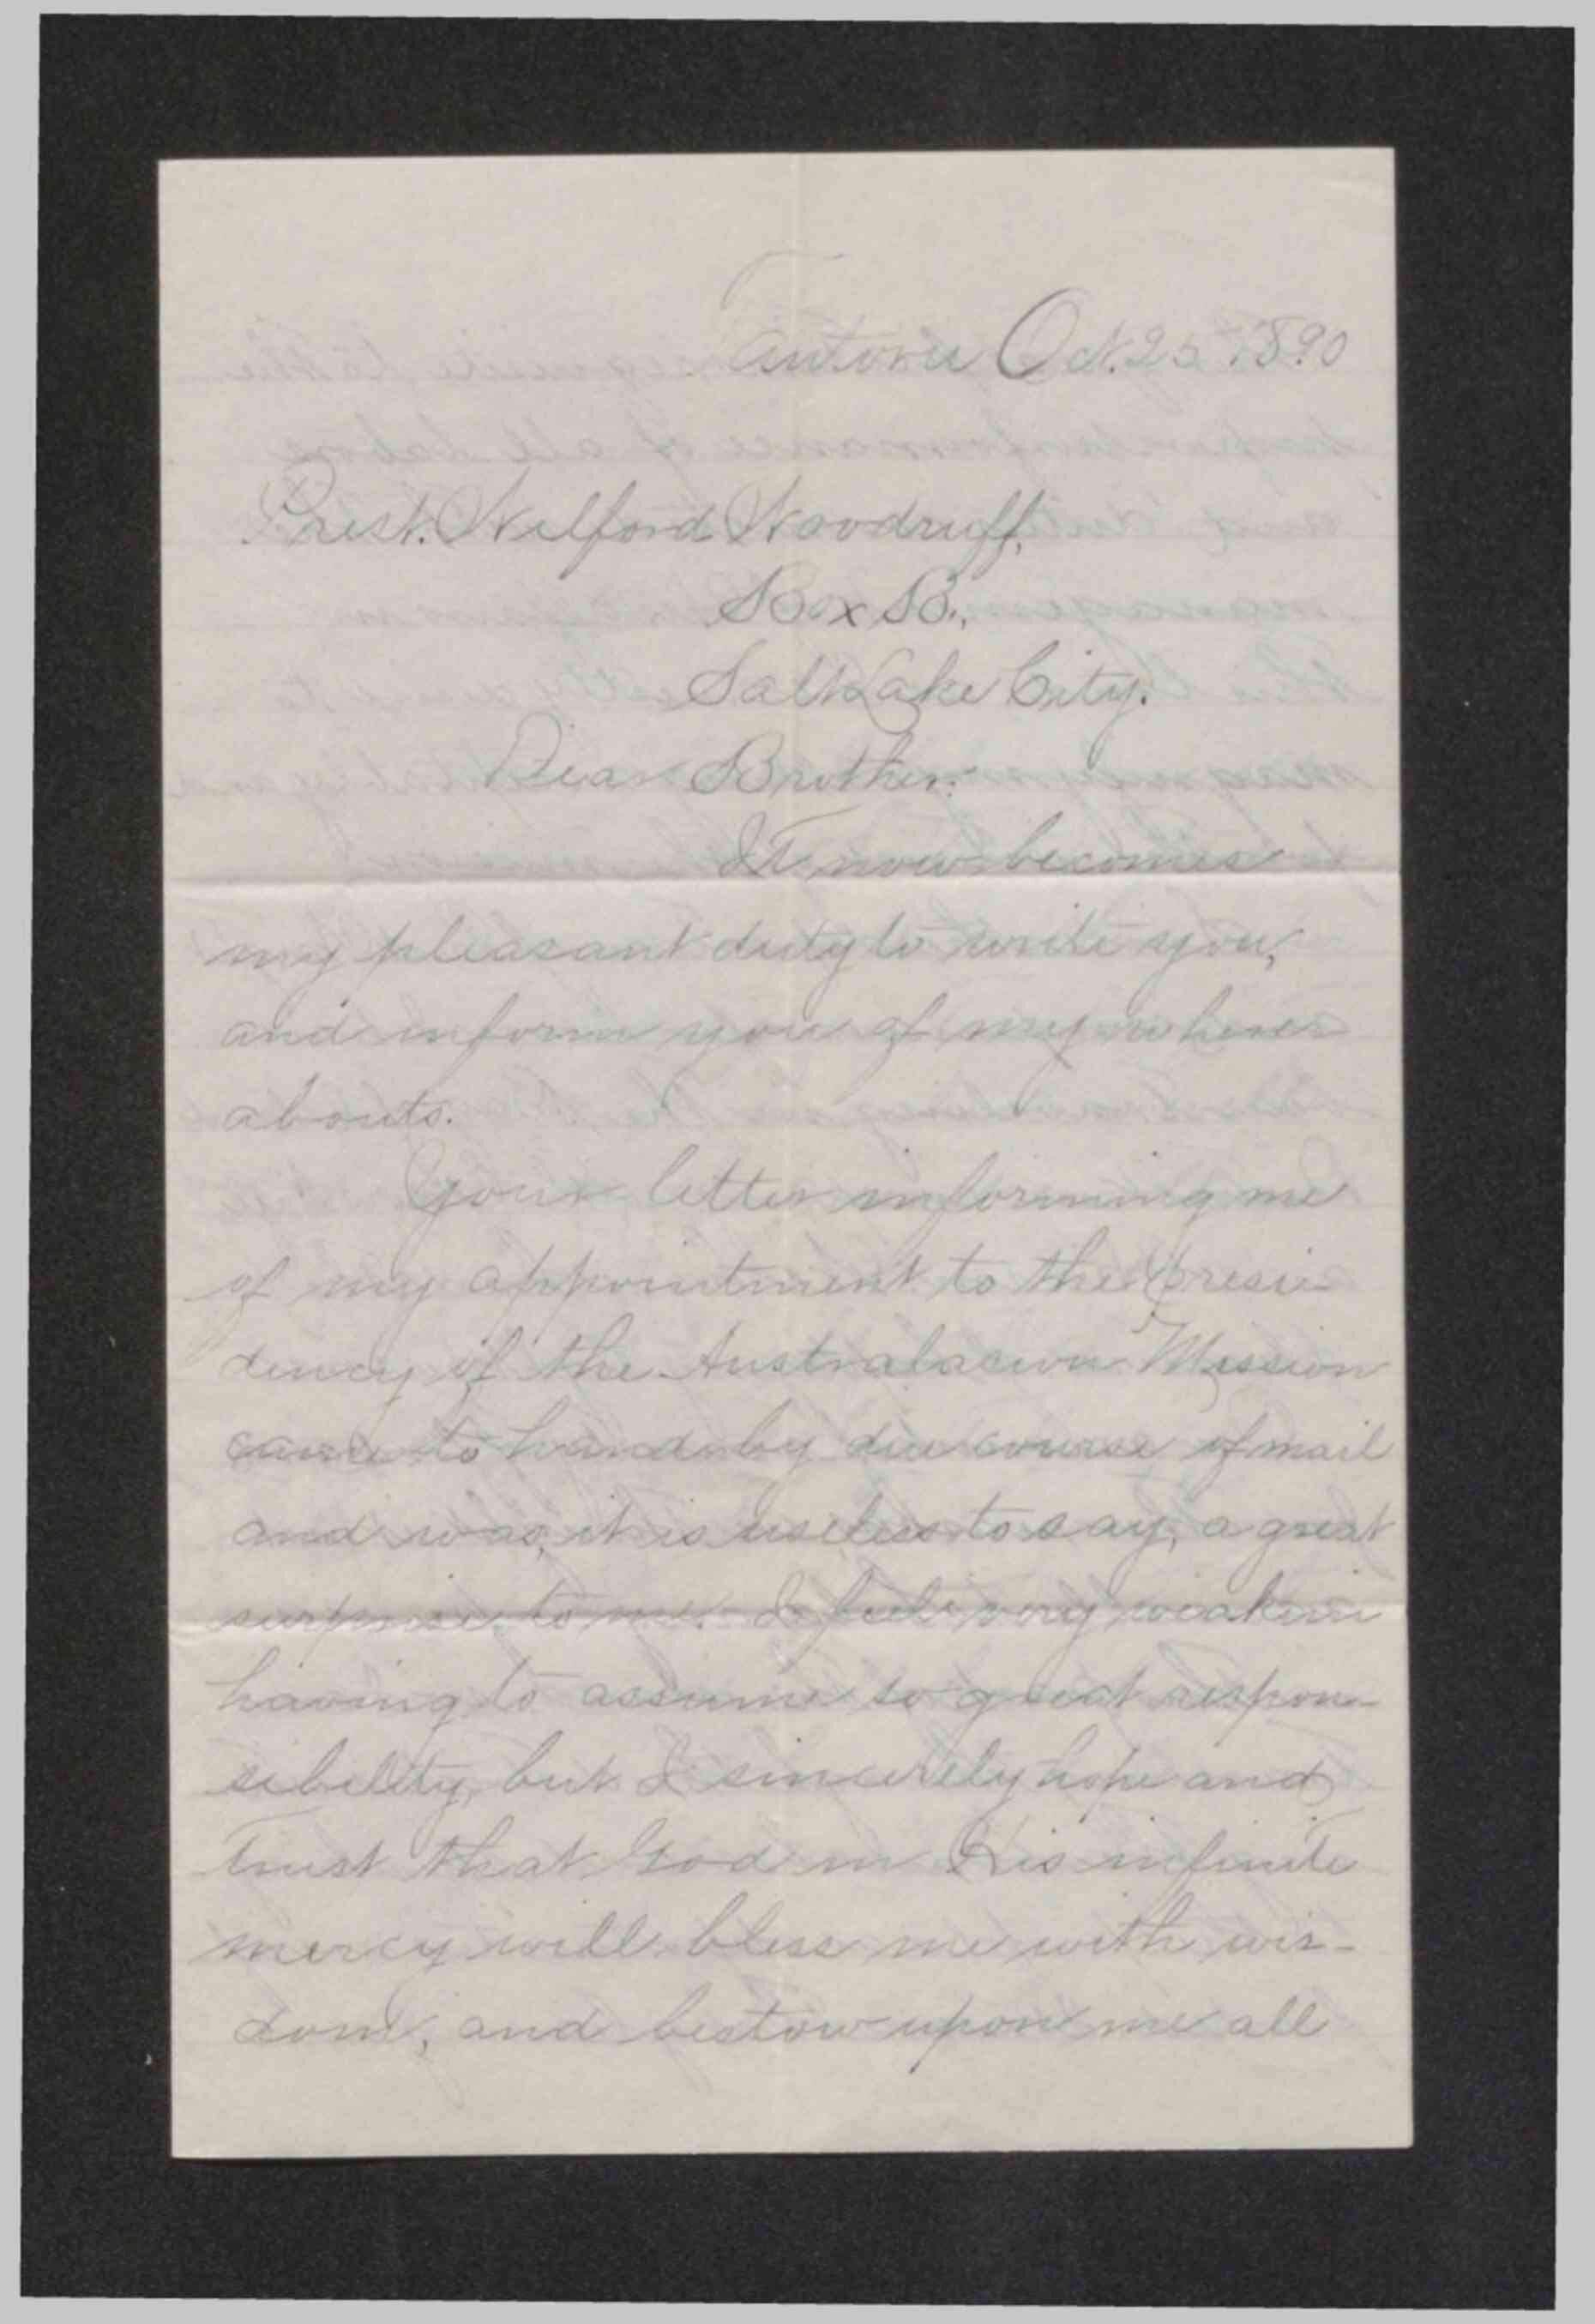 Oct. 25th 1890
Prest. Wilford Woodruff,
Box B.,
Salt Lake City.
Dear Brother:
It now becomes
my pleasant duty to write you,
and inform you of my where
abouts.
Your letter informing me
of my appointment to the Presi-
dency of the Australasian Mission
came to hand by due course of mail
and was, it is useless to say, a great
surprise to me. I feel very weak in
having to assume so great respon-
sibility, but I sincerely hope and
trust that God in His infinite
mercy will bless me with wis-
dom, and bestow upon me all